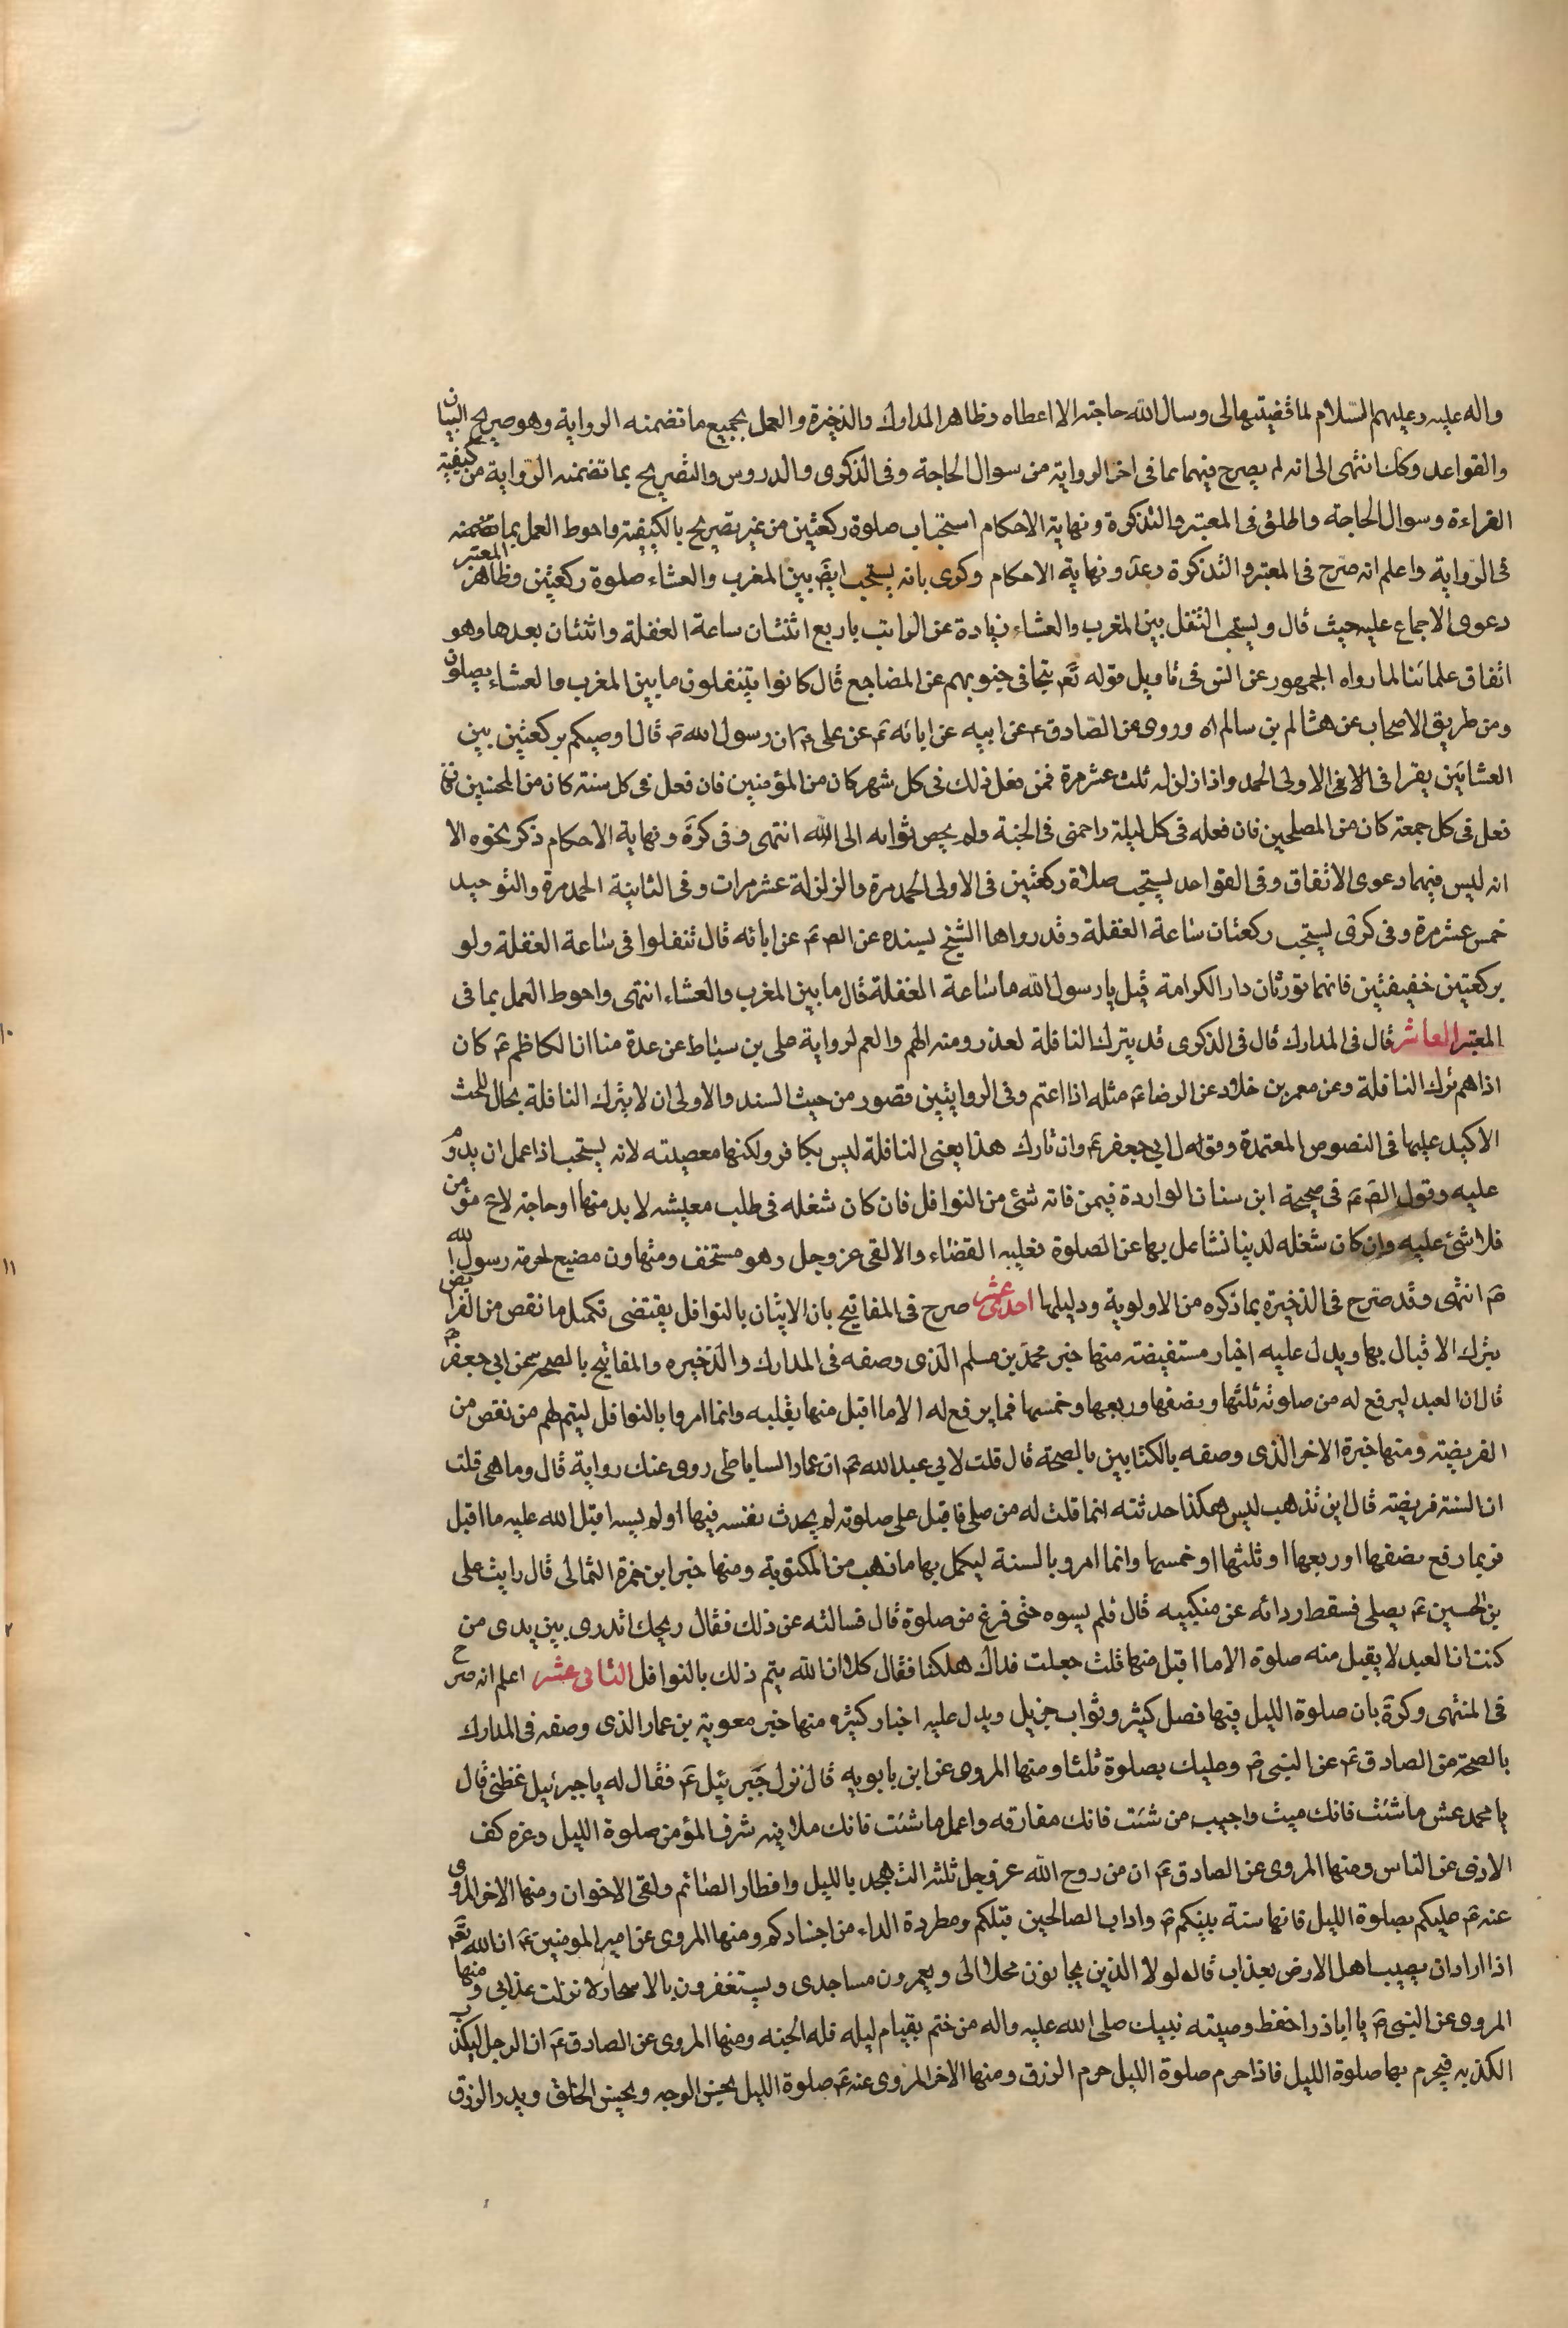 واله عليه وعليهم السّلام لما قضيتها لى وسال اللّه حاجته الا اعطاه وظاهر المدارك والذخيرة والعمل بجميع ما تضمنه الرواية وهو صريح البيان
والقواعد وكان انتهى الى انه لم يصرح فيهما بما فى اخر الرواية من سوال الحاجة وفى الذكرى والدروس والتصريح بما تضمنه الرّواية من كيفية
القراءة وسوال الحاجة واطلق فى المعتبر والتذكرة ونهاية الاحكام استحباب صلوة ركعتين من غير تصريح بالكيفية واحوط العمل بما تضمنه
فى الرّواية واعلم انه صرّح فى المعتبر والتذكرة وعد ونهاية الاحكام وكرى بانه يستحب ايضَ بين المغرب والعشاء صلوة ركعتين وظاهر المعتبر
دعوى الاجماع عليه حيث قال ويستحب التنفل بين المغرب والعشاء زيادة عن الراتب باربع اثنتان ساعة الغفلة واثنتان بعدها وهو
اتفاق علمائنا لما رواه الجمهور عن انس فى تاويل قوله تعَ تتجافى جنوبهم عن المضاجع قال كانوا يتنفلون ما بين المغرب والعشاء يصلون
ومن طريق الاصحاب عن هشام بن سالم اه وروى عن الصّادق ع عن ابيه عن ابائه عَ عن على عَ ان رسول اللّه صَ قال اوصيكم بركعتين بين
العشائين يقرا فى الاولى الحمد واذا زلزله ثلث عشر مرة فمن فعل ذلك فى كل شهر كان من المؤمنين فان فعل فى كل سنة كان من المحسنين فان
فعل فى كل جمعة كان من المصلحين فان فعله فى كل ليلة زاحمنى فى الجنة ولم يحص ثوابه الى اللّه انتهى وفى كرة ونهاية الاحكام ذكر نحوه الا
انه ليس فيهما دعوى الاتفاق وفى القواعد يستحب صلاة ركعتين فى الاولى الحمد مرة والزلزلة عشر مرات وفى الثانية الحمد مرة والتوحيد
خمس عشر مرة وفى كرى يستحب ركعتان ساعة الغفلة وقد رواها الشيخ بسنده عن الص عَ عن ابائه قال تنفلوا فى ساعة الغفلة ولو
بركعتين خفيفتين فانهما تورثان دار الكرامة قيل يا رسول اللّه ما ساعة الغفلة قال ما بين المغرب والعشاء انتهى واحوط العمل بما فى
المعتبر العاشر قال فى المدارك قال فى الذكرى قد يترك النافلة لعذر ومنه الهم والغم لرواية على بن سباط عن عدة منا ان الكاظم عَ كان
اذا هم ترك النافلة وعن معمر بن خلاد عن الرضا عَ مثله اذا اغتم وفى الروايتين قصور من حيث السند والاولى ان لا يترك النافلة بحال للحث
الاكيد عليها فى النصوص المعتمدة وقوله ابي جعفر عَ وان تارك هذا يعنى النافلة ليس بكافر ولكنها معصيته لانه يستحب اذا عمل ان يدوم
عليه وقول الصَ عَ فى صحيحة ابن سنان الواردة فيمن فاته شئ من النوافل فان كان شغله فى طلب معيشه لابد منها او حاجة لاخ مؤمن
فلا شئ عليه وان كان شغله لدنيا تشاغل بها عن الصلوة فعليه القضاء والا لقى عز وجل وهو مستخف ومتهاون مضيع لحرمة رسول اللّه
صَ انتهى وقد صرّح فى الذخيرة بما ذكره من الاولوية ودليلها احد عشر صرح فى المفاتيح بان الاتيان بالنوافل يقتضى تكميل ما نقص من الفرائض
بترك الاقبال بها ويدل عليه اخبار مستفيضة منها خبر محمد بن مسلم الّذى وصفه فى المدارك والذخيره والمفاتيح بالصحر عن ابي جعفر عَ
قال ان العبد ليرفع له من صلوته ثلثها ونصفها وربعها وخمسها فما يرفع له الا ما اقبل منها بقلبه وانما امروا بالنوافل ليتم لهم من نقص من
الفريضة ومنها خبرة الاخر الّذى وصفه بالكتابين بالصحة قال قلت لابي عبد اللّه عَ ان عمار الساباطى روى عنك رواية قال وما هى قلت
ان السنة فريضة قال اين تذهب ليس هكذا حدثته انما قلت له من صلى فاقبل على صلوته لم يحدث نفسه فيها او لم يسه اقبل اللّه عليه ما اقبل
فربما رفع نصفها او ربعها او ثلثها او خمسها وانما امرو بالسنة ليكمل بها ما ذهب من المكتوبة ومنها خبر ابن حمزة الثمالى قال رايت على
بن الحسين عَ يصلى فسقط ردائه عن منكبيه قال فلم يسوه حتى فرغ من صلوة قال فسالته عن ذلك فقال ريحك اتدرى بين يدى من
كنت ان العبد لا يقبل منه صلوة الا ما اقبل منها قلت جعلت فداك هلكنا فقال كلا ان اللّه يتم ذلك بالنوافل الثانى عشر اعلم انه صرح
فى المنتهى وكرة بان صلوة الليل فيها فضل كثير وثواب جزيل ويدل عليه اخبار كثيره منها خبر معوية بن عمار الذى وصفه فى المدارك
بالصحة من الصادق عَ عن النبى صَ وعليك بصلوة ثلثا ومنها المروى عن ابن بابويه قال نزل جَبرئيل عَ فقال له يا جبرئيل عظنى قال
يا محمد عش ما شئت فانك ميت واحبب من شئت فانك مفارقه واعمل ما شئت فانك ملاقيه شرف المؤمن صلوة الليل وعزه كف
الاذى عن الناس ومنها المروى عن الصادق عَ ان من روح اللّه عز وجل ثلثه التهجد بالليل وافطار الصائم ولقى الاخوان ومنها الاخر المروى
عنه عَ عليكم بصلوة الليل فانها سنة نبيّكم صَ واداب الصالحين قبلكم ومطردة الداء من اجسادكم ومنها المروى عن امير المومنين عَ ان اللّه تعَ
اذا اراد ان يصيب اهل الارض بعذاب قال لولا الذين يتحابون بجلالى ويعمرون مساجدى ويستغفرون بالاسحار لانزلت عذابي ومنها
المروى عن النبى صَ يا اباذر احفظ وصيته نبيك صلى اللّه عليه واله من ختم بقيام ليله فله الجنه ومنها المروى عن الصادق عَ ان الرجل ليكذب
الكذبه فيحرم بها صلوة الليل فاذا حرم صلوة الليل حرم الرزق ومنها الاخر المروى عنه عَ صلوة الليل يحسن الوجه ويحسن الخلق ويدر الرزق